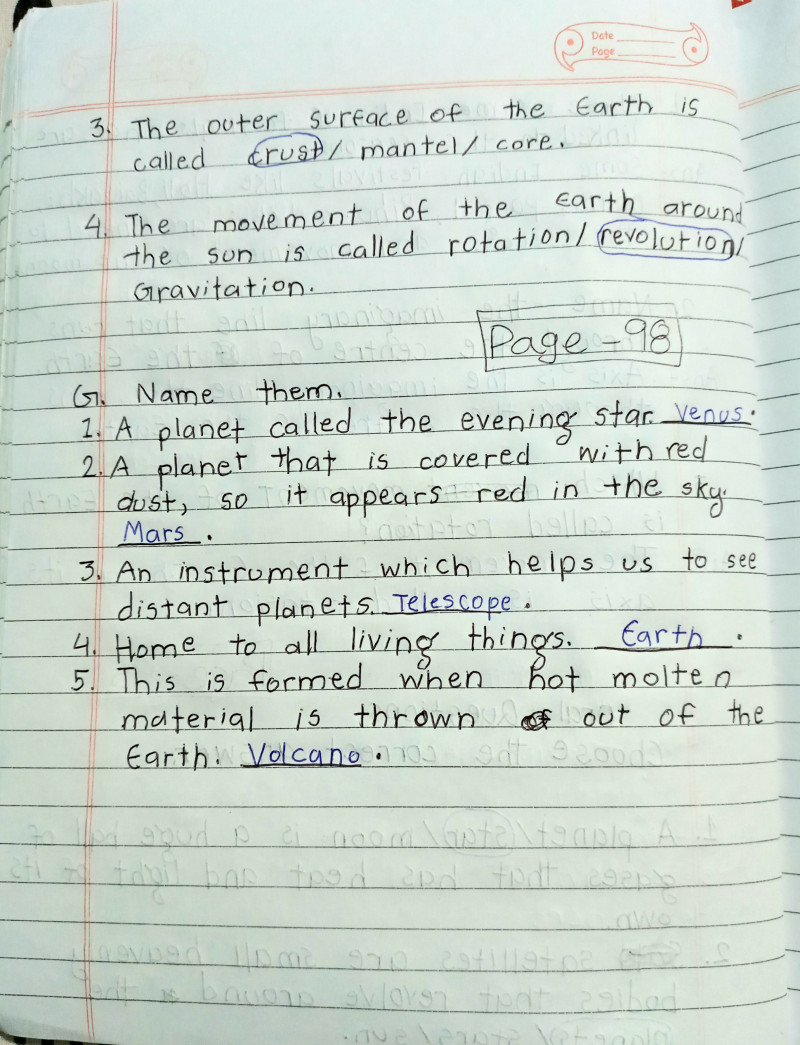 Date
Page
3. The outer surface of the Earth is
called crust/ mantel/ core.
4. The movement of the Earth around
the sun is called rotation/ revolution/
Gravitation.
Page - 98
G. Name them.
1. A planet called the evening star. Venus.
2. A planet that is covered with red
dust, so it appears red in the sky.
Mars.
3. An instrument which helps us to see
distant planets. Telescope.
4. Home to all living things. Earth.
5. This is formed when hot molten
material is thrown out of the
Earth. Volcano.